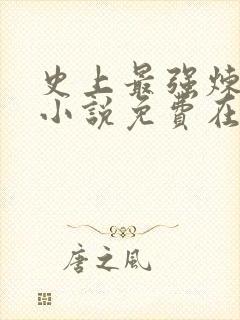 史上最强炼
小説免費在
唐之風